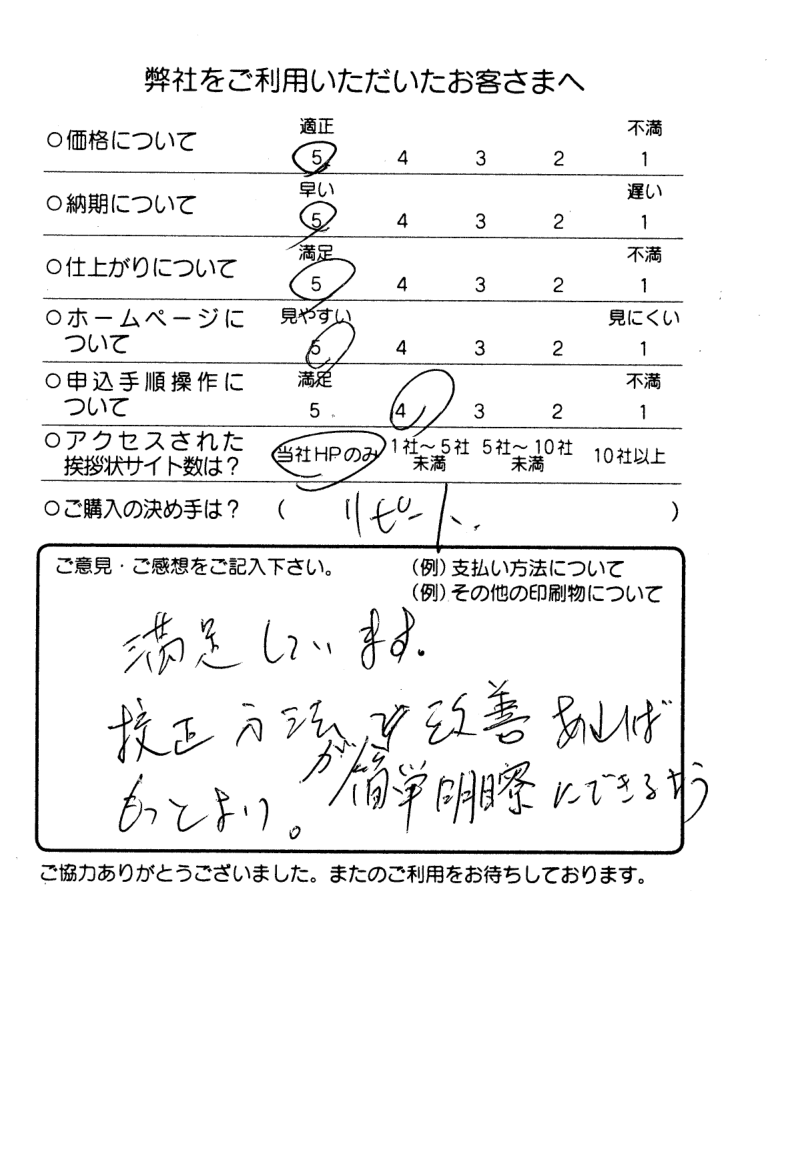 弊社をご利用いただいたお客さまへ
適正 不満
○価格について 5 4 3 2 1
早い 遅い
○納期について 5 4 3 2 1
満足 不満
○仕上がりについて 5 4 3 2 1
○ホームページに 見やすい 見にくい
ついて 5 4 3 2 1
○申込手順操作に 満足 不満
ついて 5 4 3 2 1
○アクセスされた 当社HPのみ 1社〜5社 5社〜10社 10社以上
挨拶状サイト数は? 未満 未満
○ご購入の決め手は? ( リピート、 )
ご意見・ご感想をご記入下さい。 (例)支払い方法について
(例)その他の印刷物について
満足しています。
校正方法で改善あれば
が簡単明瞭にできるよう
もっとよい。
ご協力ありがとうございました。またのご利用をお待ちしております。